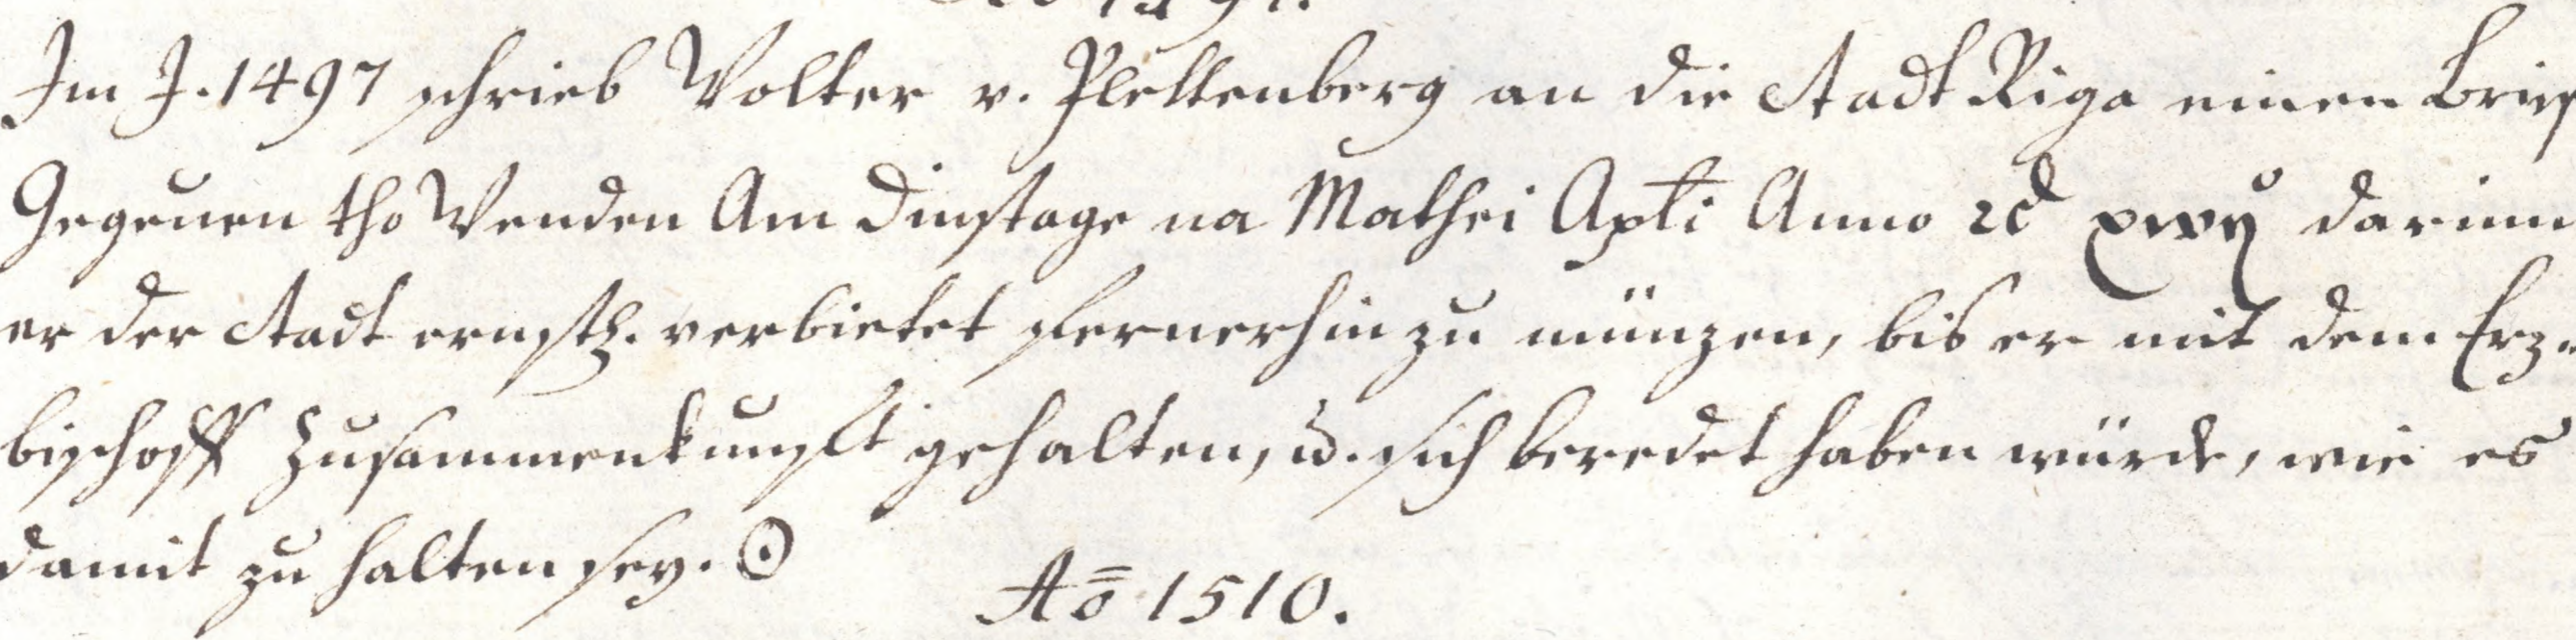 Im J. 1497 schrieb Wolter v. Plettenberg an die Stadt Riga einen Brief
Gegeuen tho Wenden Am Dinstage na Mathei Apli Anno darinn
er der Stadt ernstl. verbietet fernerhin zu münzen, bis er mit dem Erz-
bischoff Zusammenkunfft gehalten, u. sich beredet haben würde, wie es
damit zu halten sey. ⊙
Ao 1510.